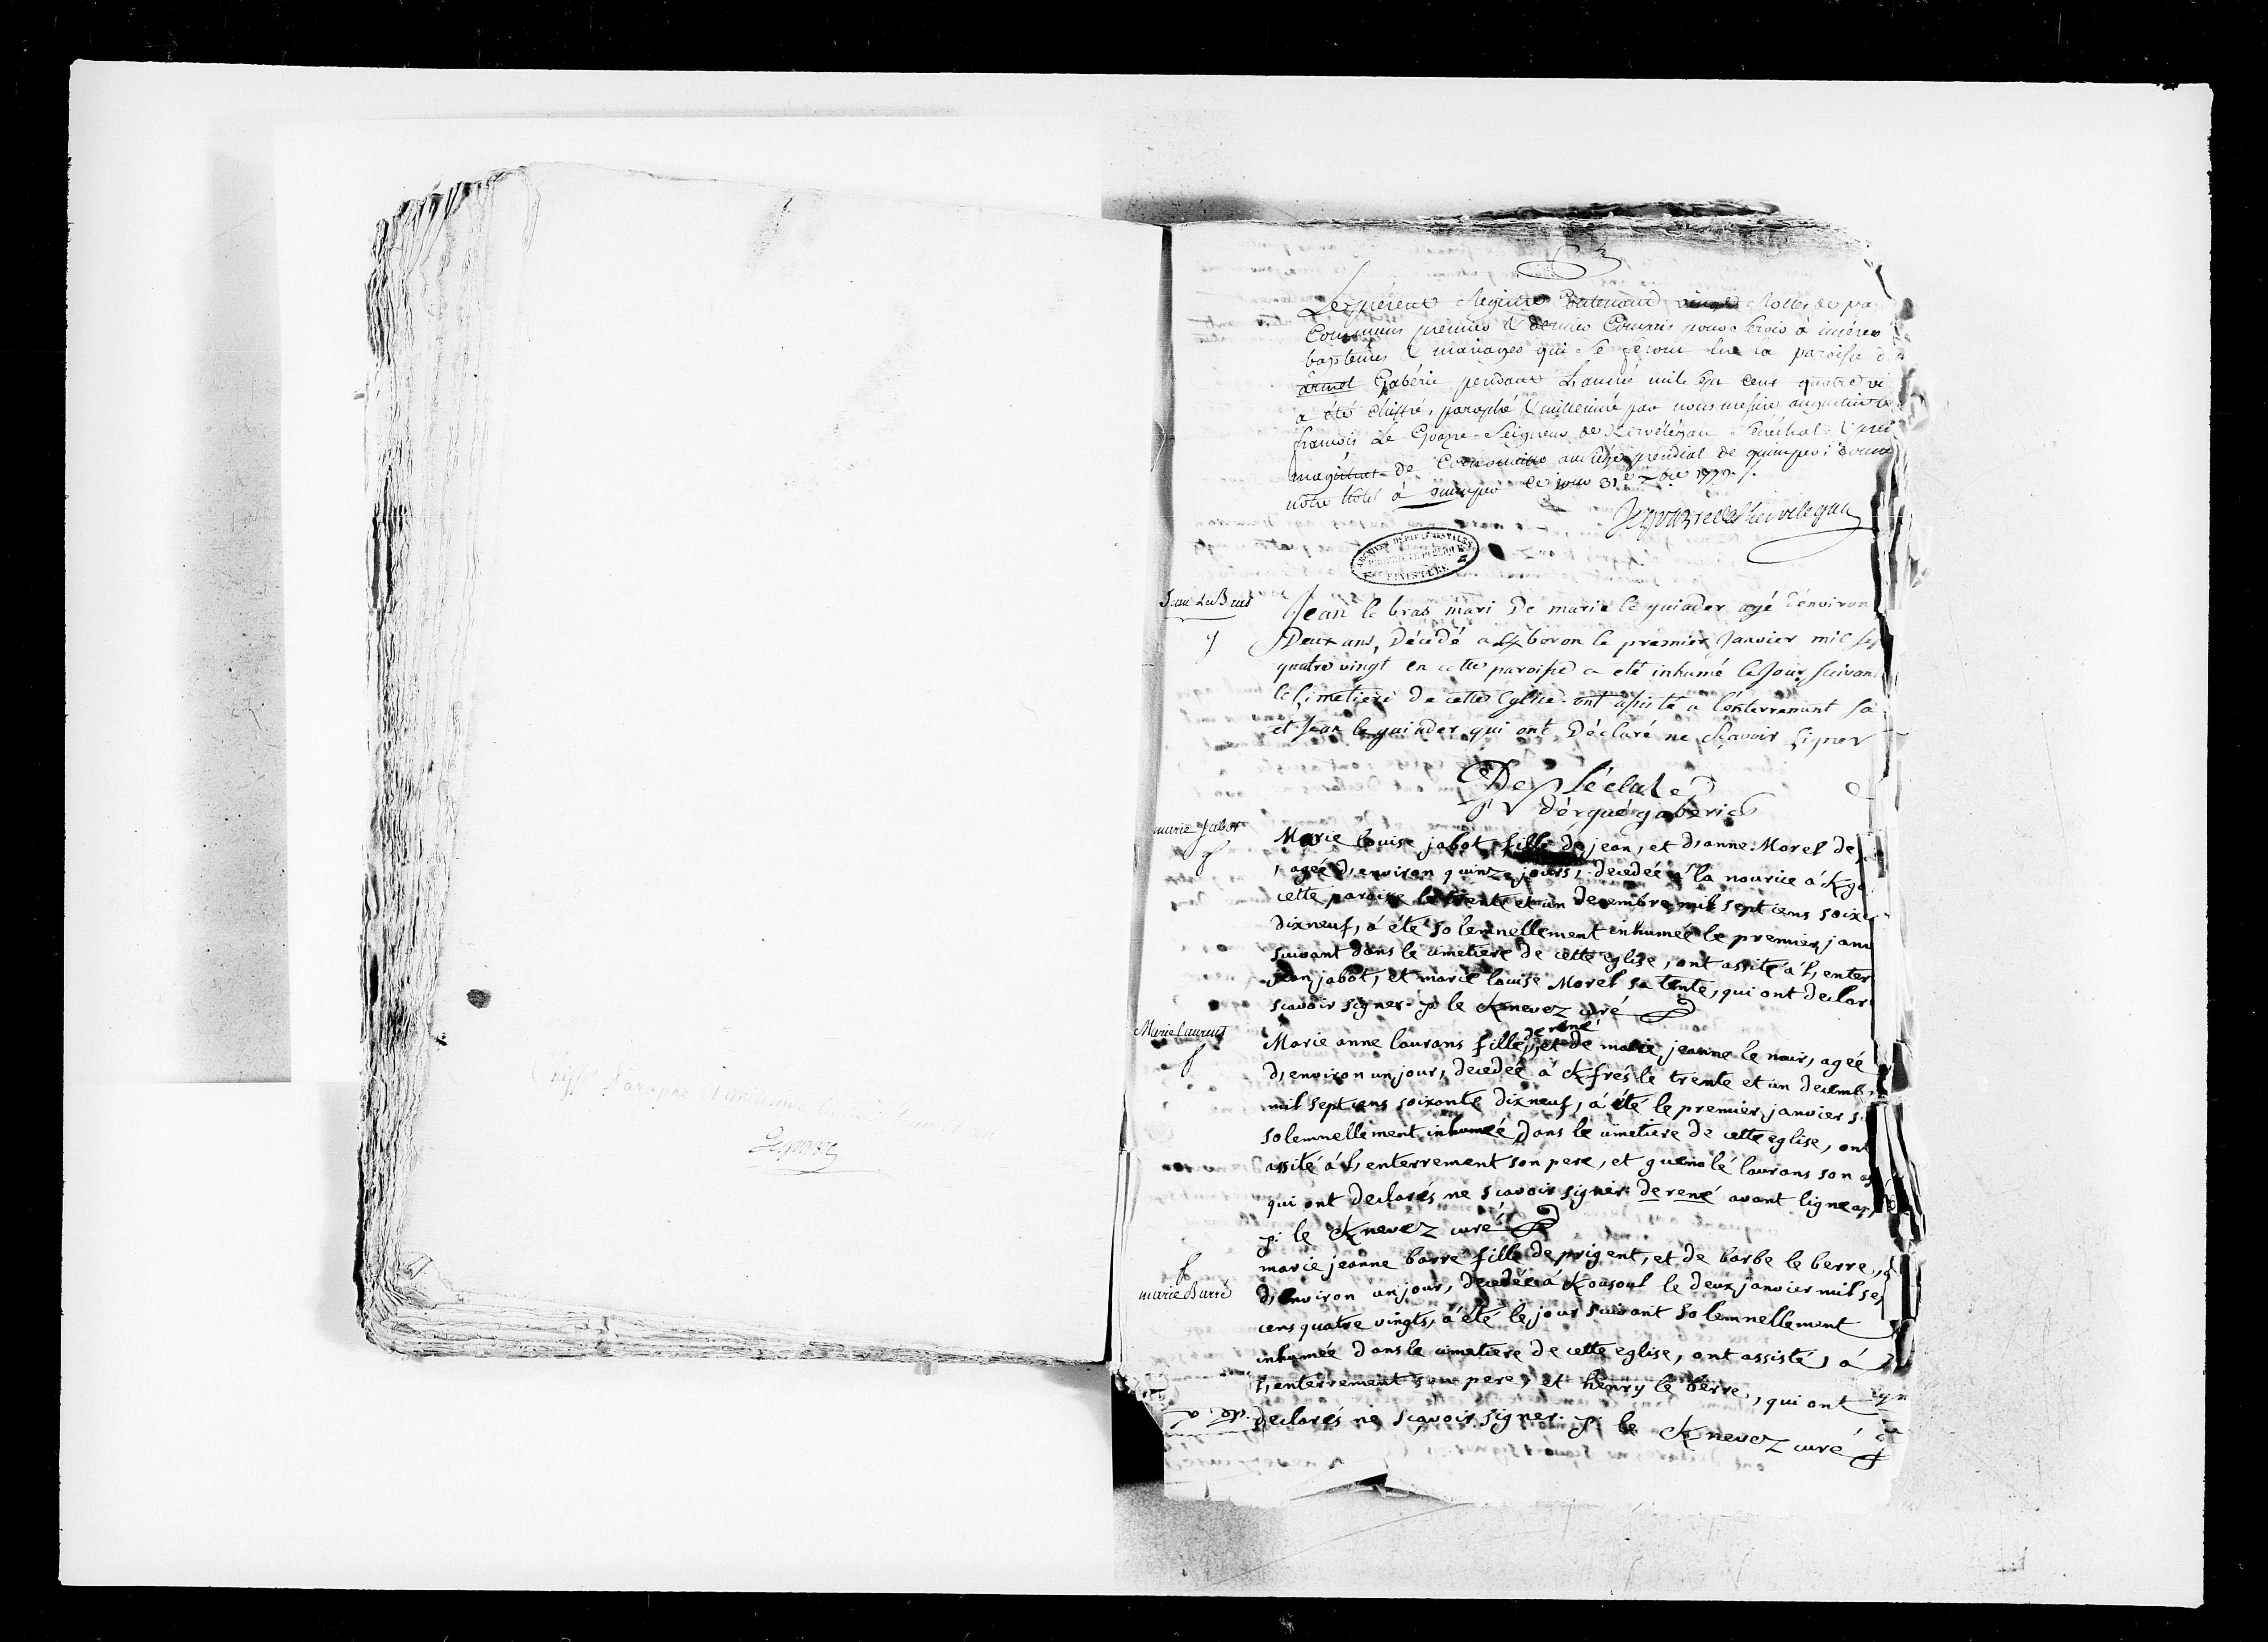 Chiffré Paraphé et millesimé
Legoazre
Le présent Registre Contenant vingt Rolles de pa
Communs premier & dernier Compris pour servir à insérer
baptemes & mariages qui se feront sur la paroisse d
armel Gabéric pendant L'année mil sept cens quatre vi
a été chiffré, paraphé & millesimé par nous messire augustin be
françois Le Goazre Seigneur de Kervélégan Sénéchal & pre
magistrat de Cornouaille au siége presidial de quimper: donné
notre hôtel à quimper ce jour 31e xbre 1779 ./.
Legoazre de Kervelegan
ARCHIVES DÉPARTEMENTALES
PROPRIÉTÉ PUBLIQUE
FINISTÈRE
Jean Le Bras
Jean le bras mari De marie le guiader agé d'environ
Deux ans, Décédé a boron le premier Janvier mil sep
quatre vingt en cette paroisse a eté inhumé le Jour suivant
le Cimetiere De cette Eglise. ont assisté a l'enterrement sa
et Jean le guiader qui ont Déclaré ne sçavoir signer
De Léclat
d'ergué gaberic
marie Jabot
Marie louise jabot fille de jean, et d,anne Morel de
, agée d,environ quinze jours, decedée á la nourice á Kgo
cette paroisse le trente et un decembre mil sept cens soix
dixneuf, á été solemnellement inhumée le premier janv
suivant dans le cimetiere de cette eglise, ont assité á l,enter
jean jabot, et marie louise Morel sa tente, qui ont declar
scavoir signer. p: le Knevez curé
Marie laurent
de rené
Marie anne laurans fille, et de marie jeanne le naur, agée
d,environ un jour, decedée á Kfrés le trente et un decemb
mil sept cens soixante dixneuf, á été le premier janvier su
solemnellement inhumée dans le cimetiere de cette eglise, ont
assité á l,enterrement son pere, et guenolé laurans son
qui ont declarés ne scavoir signer: de rené avant ligne ap
p: le Knevez curé
marie Barré
marie jeanne barré fille de prigent, et de barbe le berre, a
d,environ un jour, decedée á Kousoul le deux janvier mil sep
cens quatre vingts, á été le jour suivant solemnellement
inhumée dans le cimetiere de cette eglise, ont assisté, á
l,enterrement son pere, et henry le berre, qui ont
declarés ne sçavoir signer. p: le Knevez curé